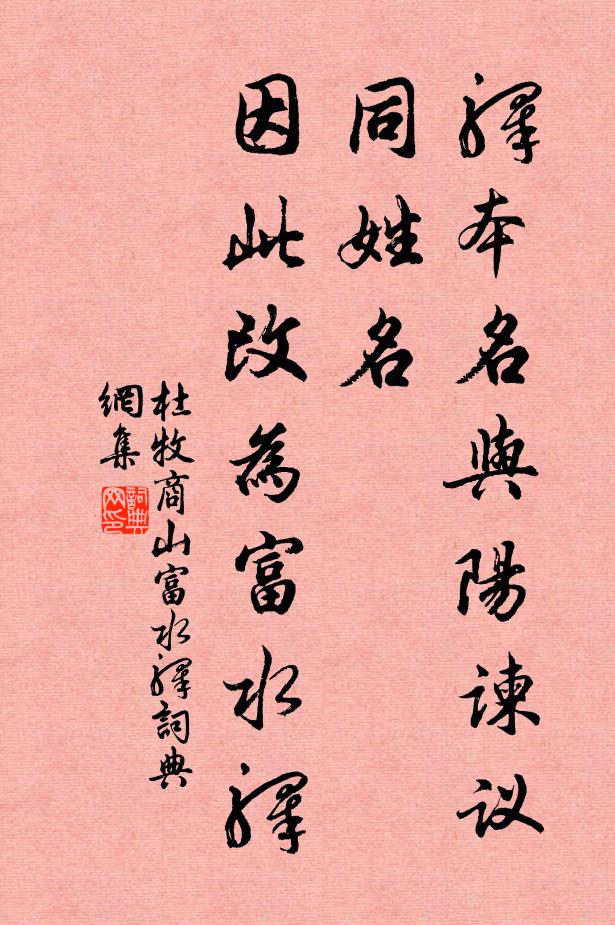 驛本名與陽諫议
同姓名
因此改為富水驛
杜牧商山富水驛詞典
網集
詞典
网印